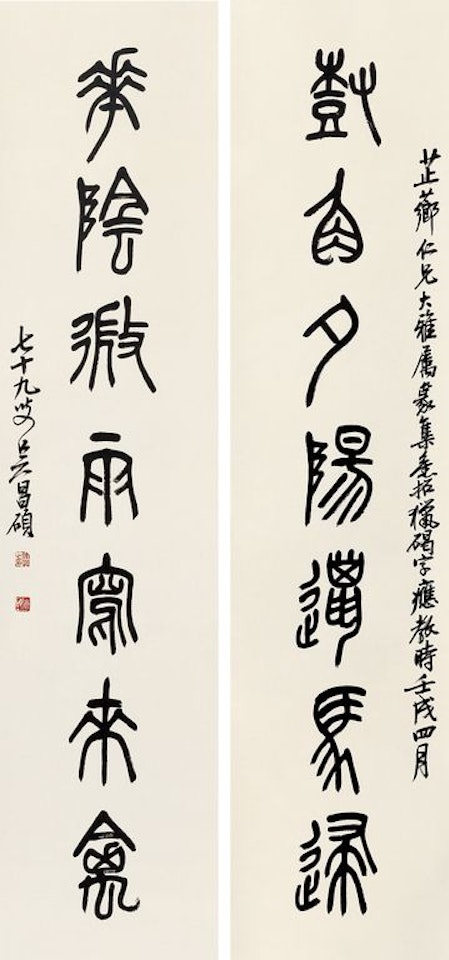 尌夕陽馬歸
芷薌仁兄大雅屬篆集舊拓獵碣字應教時壬戌四月
華陰微雨寫來禽
七十九叟吳昌碩